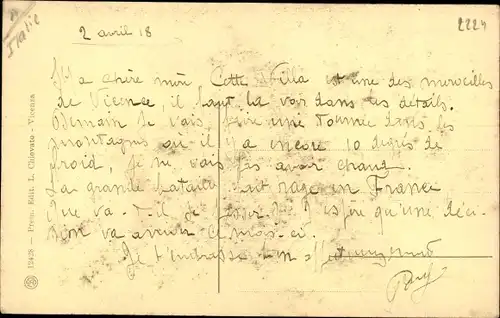 Italie
2224
2 avril 18
Ma chère mère Cette Villa est une des merveilles
de Vicence, il faut la voir dans les détails.
Demain Je vais faire une Tournée dans les
montagnes où il y a encore 10 degrés de
froid, je ne vais pas avoir chaud.
La grande bataille fait rage en France
que va-t-il se passer? J'espère qu'une déci-
sion va avenir ce mois-ci.
Je t'embrasse bien
12428 — Prem. Edit. L. Chiovato - Vicenza